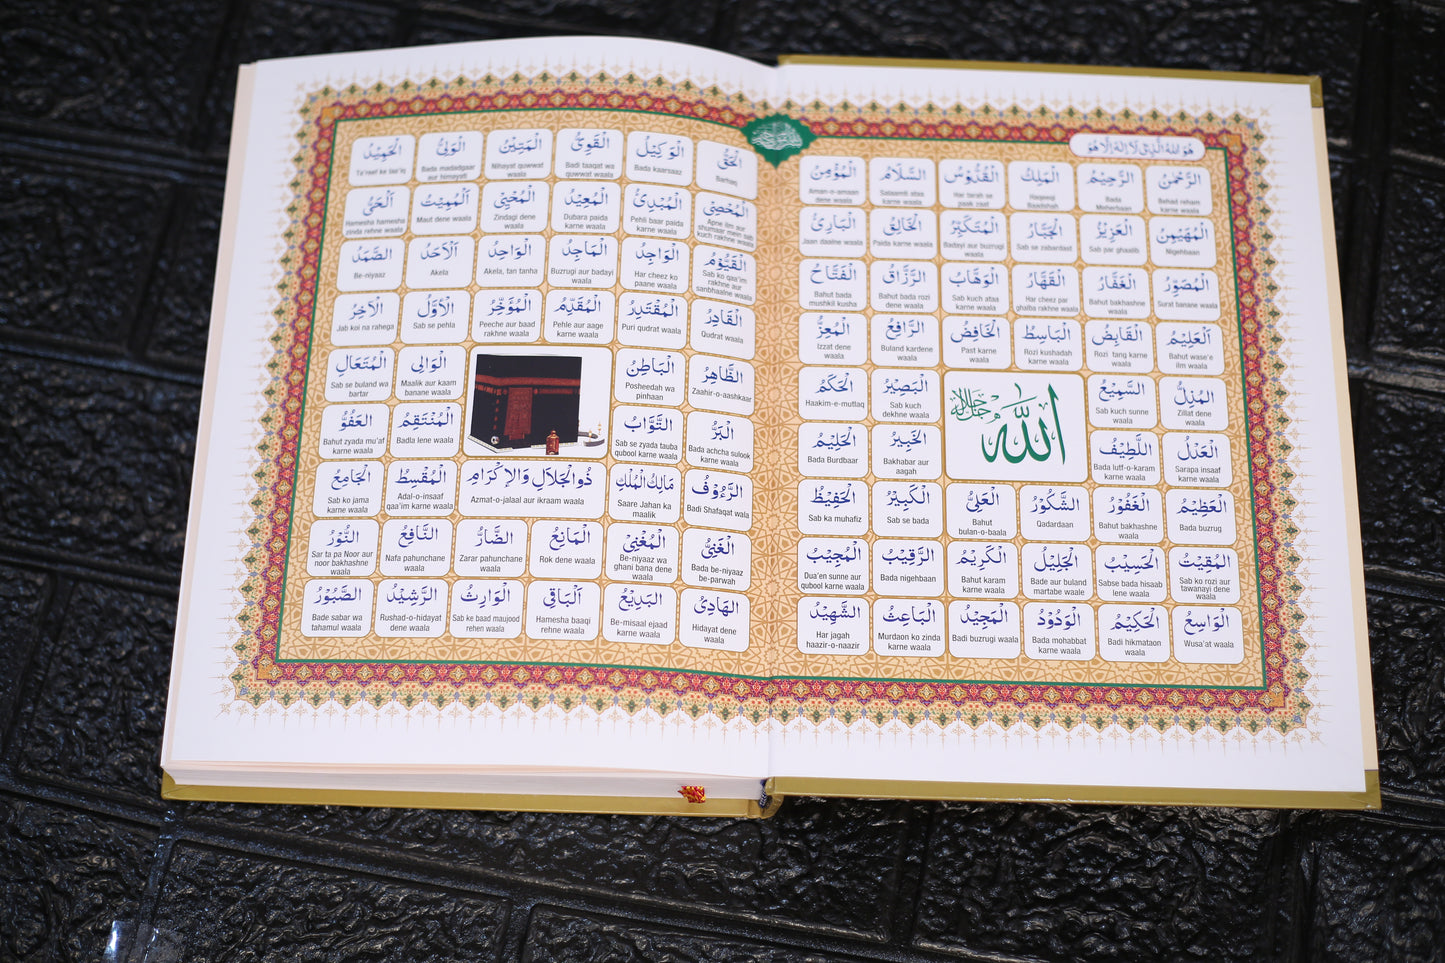 هُوَ اللهُ الَّذِیْ لَا اِلٰهَ اِلَّا هُوَ
اَلرَّحْمٰنُ
Behad reham
karne waala
اَلرَّحِيْمُ
Bada
Meherbaan
اَلْمَلِكُ
Haqeeqi
Baadshah
اَلْقُدُّوْسُ
Har tarah se
paak zaat
اَلسَّلَامُ
Salaamti ataa
karne waala
اَلْمُؤْمِنُ
Aman-o-amaan
dene waala
اَلْمُهَيْمِنُ
Nigehbaan
اَلْعَزِيْزُ
Sab par ghaalib
اَلْجَبَّارُ
Sab se zabardast
اَلْمُتَكَبِّرُ
Badayi aur buzrugi
waala
اَلْخَالِقُ
Paida karne waala
اَلْبَارِئُ
Jaan daalne waala
اَلْمُصَوِّرُ
Surat banane waala
اَلْغَفَّارُ
Bahut bakhashne
waala
اَلْقَهَّارُ
Har cheez par
ghalba rakhne waala
اَلْوَهَّابُ
Sab kuch ataa
karne waala
اَلرَّزَّاقُ
Bahut bada rozi
dene waala
اَلْفَتَّاحُ
Bahut bada
mushkil kusha
اَلْعَلِيْمُ
Bahut wase'e
ilm waala
اَلْقَابِضُ
Rozi tang karne
waala
اَلْبَاسِطُ
Rozi kushadah
karne waala
اَلْخَافِضُ
Past karne
waala
اَلرَّافِعُ
Buland kardene
waala
اَلْمُعِزُّ
Izzat dene
waala
اَلْمُذِلُّ
Zillat dene
waala
اَلسَّمِيْعُ
Sab kuch sunne
waala
الله جل جلاله
اَلْبَصِيْرُ
Sab kuch
dekhne waala
اَلْحَكَمُ
Haakim-e-mutlaq
اَلْعَدْلُ
Sarapa insaaf
karne waala
اَللَّطِيْفُ
Bada lutf-o-karam
karne waala
اَلْخَبِيْرُ
Bakhabar aur
aagah
اَلْحَلِيْمُ
Bada Burdbaar
اَلْعَظِيْمُ
Bada buzrug
اَلْغَفُوْرُ
Bahut bakhashne
waala
اَلشَّكُوْرُ
Qadardaan
اَلْعَلِىُّ
Bahut
bulan-o-baala
اَلْكَبِيْرُ
Sab se bada
اَلْحَفِيْظُ
Sab ka muhafiz
اَلْمُقِيْتُ
Sab ko rozi aur
tawanayi dene
waala
اَلْحَسِيْبُ
Sabse bada hisaab
lene waala
اَلْجَلِيْلُ
Bade aur buland
martabe waale
اَلْكَرِيْمُ
Bahut karam
karne waala
اَلرَّقِيْبُ
Bada nigehbaan
اَلْمُجِيْبُ
Dua'en sunne aur
qubool karne waala
اَلْوَاسِعُ
Wusa'at waala
اَلْحَكِيْمُ
Badi hikmataon
waala
اَلْوَدُوْدُ
Bada mohabbat
karne waala
اَلْمَجِيْدُ
Badi buzrugi waala
اَلْبَاعِثُ
Murdaon ko zinda
karne waala
اَلشَّهِيْدُ
Har jagah
haazir-o-naazir
اَلْحَقُّ
Barhaq
اَلْوَكِيْلُ
Bada kaarsaaz
اَلْقَوِىُّ
Badi taaqat wa
quwwat waala
اَلْمَتِيْنُ
Nihayat quwwat
waala
اَلْوَلِىُّ
Bada madadgaar
aur himayati
اَلْحَمِيْدُ
Ta'reef ke laa'iq
اَلْمُحْصِىْ
Apne ilm aur
shumaar mein sab
kuch rakhne waala
اَلْمُبْدِئُ
Pehli baar paida
karne waala
اَلْمُعِيْدُ
Dubara paida
karne waala
اَلْمُحْيِىْ
Zindagi dene
waala
اَلْمُمِيْتُ
Maut dene waala
اَلْحَىُّ
Hamesha hamesha
zinda rehne waala
اَلْقَيُّوْمُ
Sab ko qaa'im
rakhne aur
sanbhaalne waala
اَلْوَاجِدُ
Har cheez ko
paane waala
اَلْمَاجِدُ
Buzrugi aur badayi
waala
اَلْوَاحِدُ
Akela, tan tanha
اَلْاَحَدُ
Akela
اَلصَّمَدُ
Be-niyaaz
اَلْقَادِرُ
Qudrat waala
اَلْمُقْتَدِرُ
Puri qudrat waala
اَلْمُقَدِّمُ
Pehle aur aage
karne waala
اَلْمُؤَخِّرُ
Peeche aur baad
rakhne waala
اَلْاَوَّلُ
Sab se pehla
اَلْاٰخِرُ
Jab koi na rahega
اَلظَّاهِرُ
Zaahir-o-aashkaar
اَلْبَاطِنُ
Posheedah wa
pinhaan
اَلْوَالِى
Maalik aur kaam
banane waala
اَلْمُتَعَالِ
Sab se buland wa
bartar
اَلْبَرُّ
Bada achcha sulook
karne waala
اَلتَّوَّابُ
Sab se zyada tauba
qubool karne waala
اَلْمُنْتَقِمُ
Badla lene waala
اَلْعَفُوُّ
Bahut zyada mu'af
karne waala
اَلرَّءُوْفُ
Badi Shafaqat wala
مَالِكُ الْمُلْكِ
Saare Jahan ka
maalik
ذُو الْجَلَالِ وَالْاِكْرَامِ
Azmat-o-jalaal aur ikraam waala
اَلْمُقْسِطُ
Adal-o-insaaf
qaa'im karne waala
اَلْجَامِعُ
Sab ko jama
karne waala
اَلْغَنِىُّ
Bada be-niyaaz
be-parwah
اَلْمُغْنِىْ
Be-niyaaz wa
ghani bana dene
waala
اَلْمَانِعُ
Rok dene waala
اَلضَّارُّ
Zarar pahunchane
waala
اَلنَّافِعُ
Nafa pahunchane
waala
اَلنُّوْرُ
Sar ta pa Noor aur
noor bakhashne
waala
اَلْهَادِىْ
Hidayat dene
waala
اَلْبَدِيْعُ
Be-misaal ejaad
karne waala
اَلْبَاقِى
Hamesha baaqi
rehne waala
اَلْوَارِثُ
Sab ke baad maujood
rehen waala
اَلرَّشِيْدُ
Rushad-o-hidayat
dene waala
اَلصَّبُوْرُ
Bade sabar wa
tahamul waala